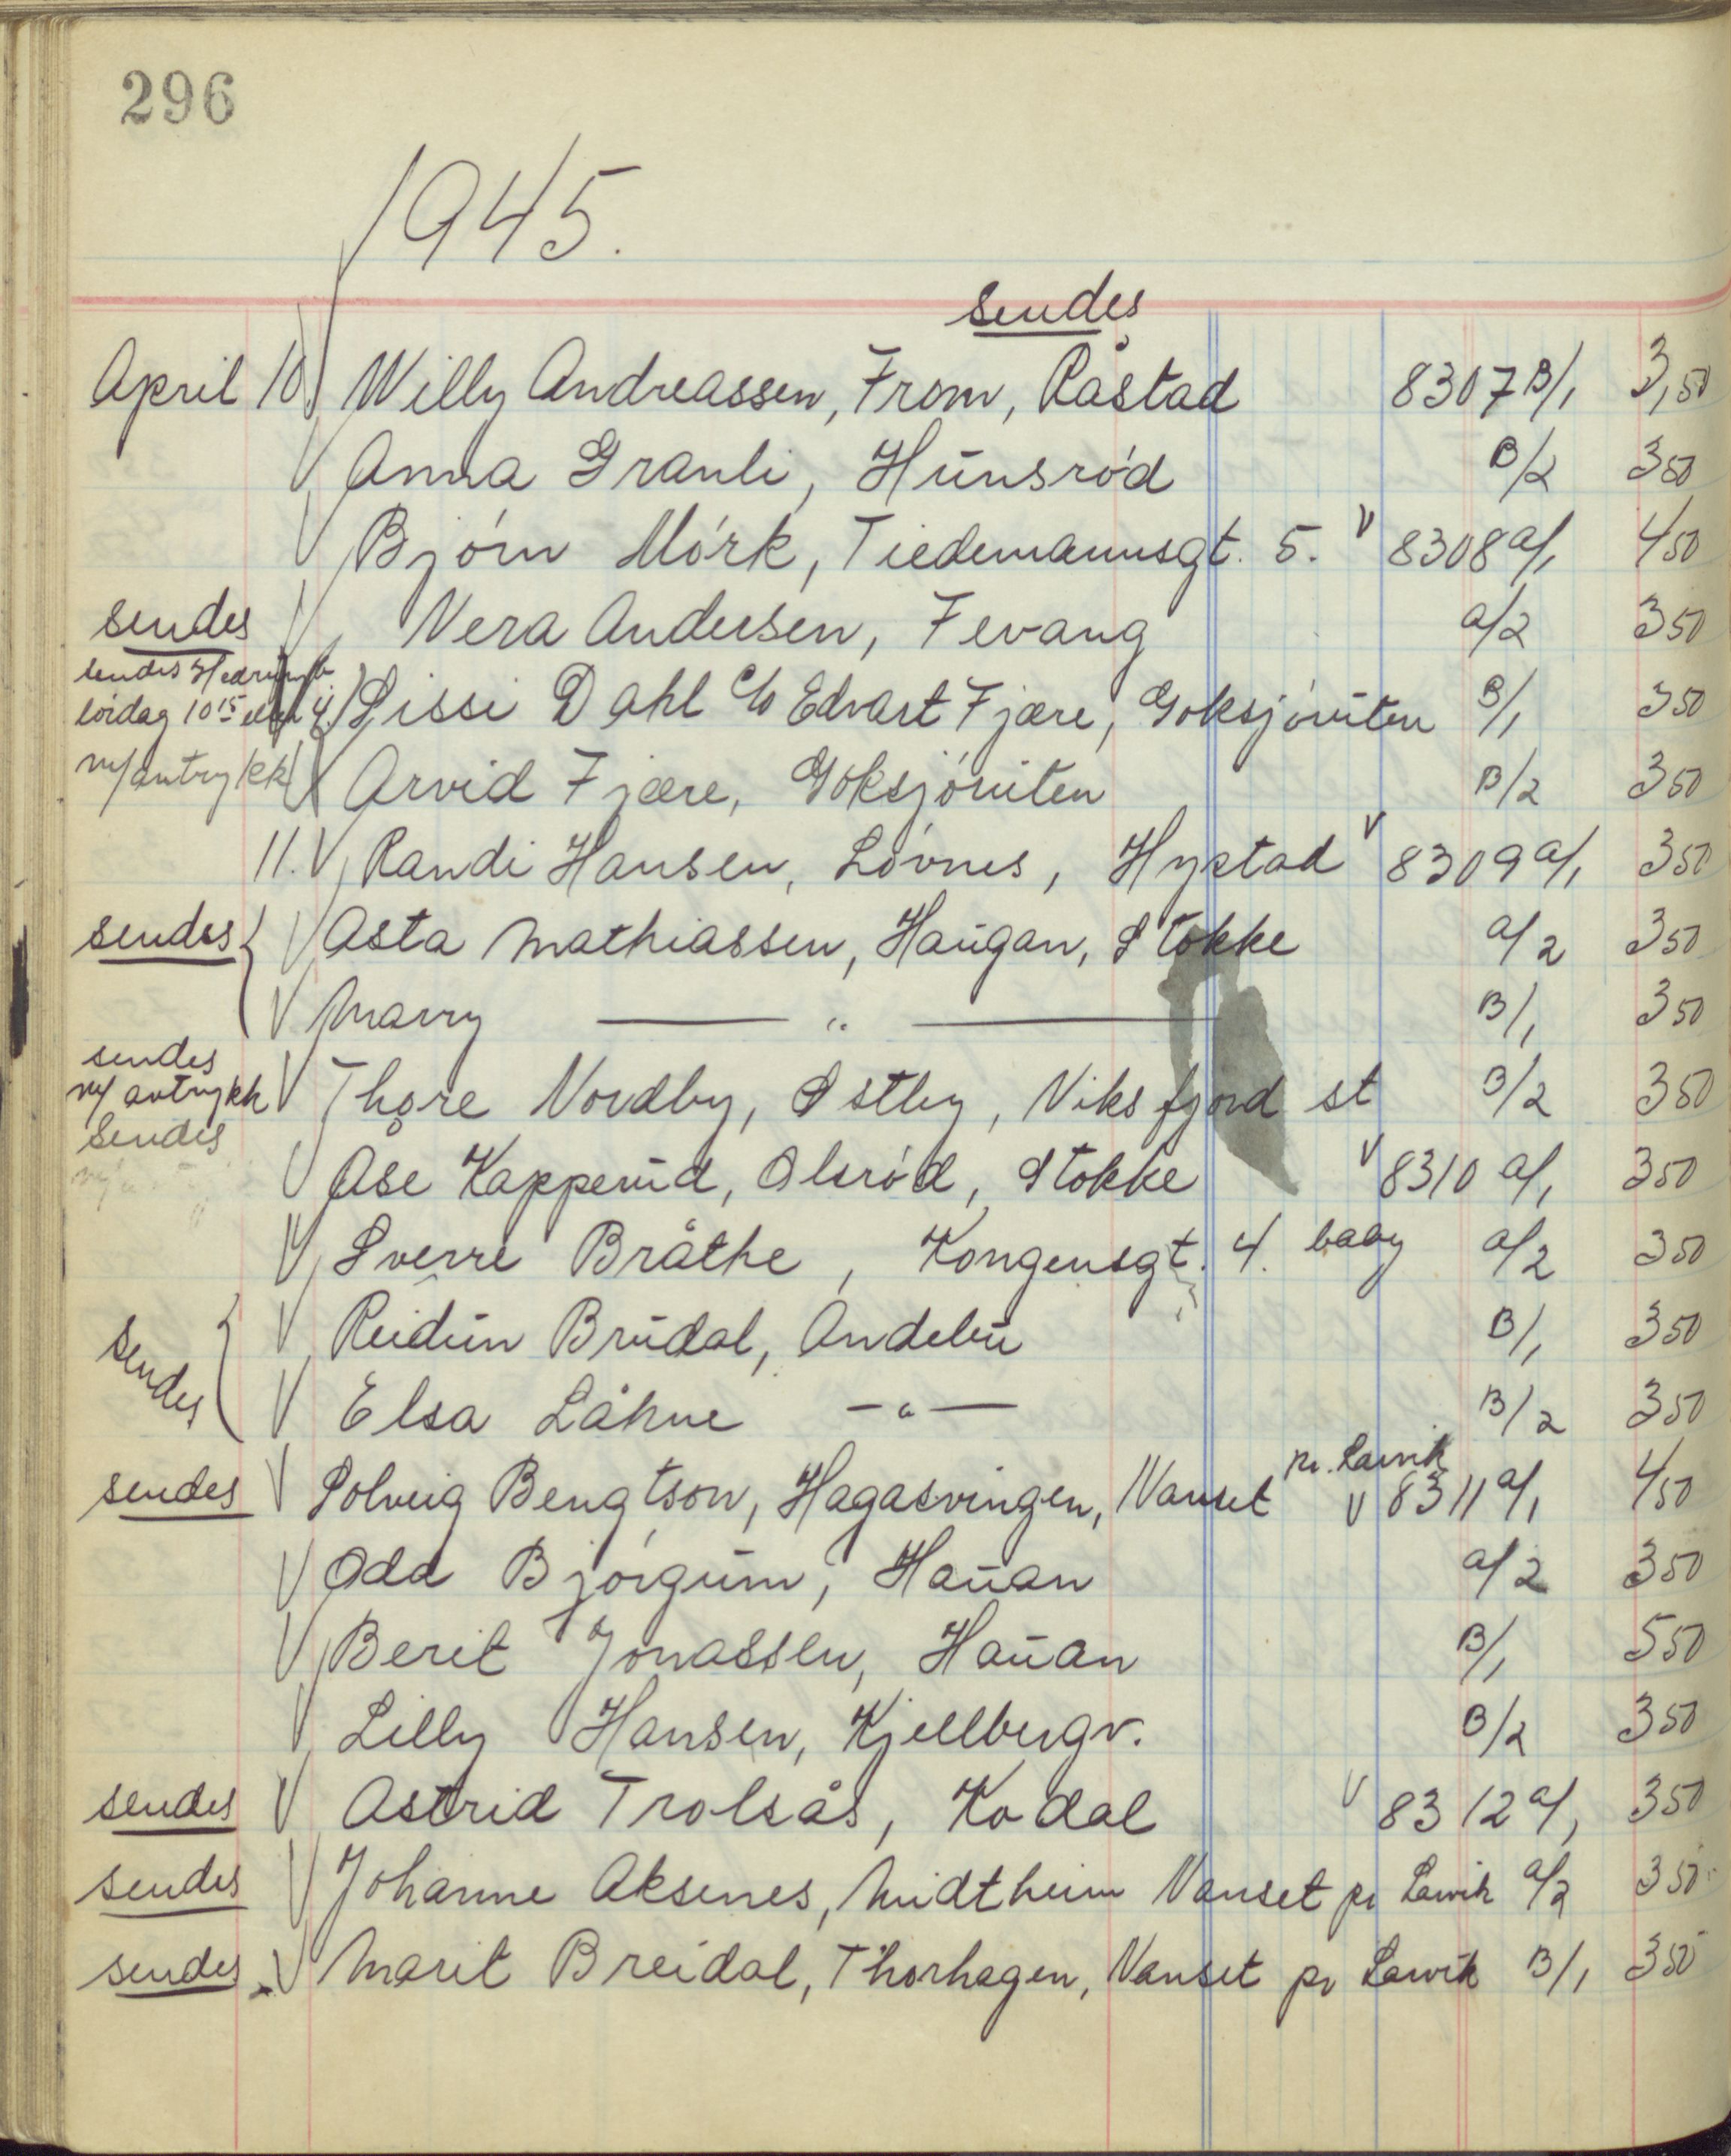 296
1945.
sendes
April 10. V Willy Andreassen, From, Råstad 8307 B/1 3,50
V Anna Granli, Hunsrød B/2 350
V Bjørn Mørk, Tiedemannsgt. 5. V 8308 a/1 450
sendes V Vera Andersen, Fevang a/2 350
sendes
lørdag 10 15 V Lissi Dahl c/o Edvart Fjære, Goksjøruten B/1 350
ny avtrykk V Arvid Fjære, Goksjøruten B/2 350
11. V Randi Hansen, Løvnes, Hystad V 8309 a/1 350
sendes { V Asta Mathiassen, Haugan, Stokke a/2 350
V Marry — " — B/1 350
sendes
ny avtrykk V Thore Nordby, Østby, Viksfjord st B/2 350
sendes
V Åse Kapperud, Olsrød, Stokke V 8310 a/1 350
V Sverre Bråthe, Kongensgt. 4. baby a/2 350
sendes { V Reidun Brudal, Andebu B/1 350
V Elsa Låhne — " — B/2 350
pr. Larvik
sendes V Solveig Bengtson, Hagasvingen, Nanset V 8311 a/1 450
V Odd Bjørgum, Hauan a/2 350
V Berit Jonassen, Hauan B/1 550
V Lilly Hansen, Kjellbergv. B/2 350
sendes V Astrid Trolsås, Kodal V 8312 a/1 350
sendes V Johanne Aksenes, Midtheim Nanset pr Larvik a/2 350
sendes V Marit Breidal, Thorhagen, Nanset pr Larvik B/1 350